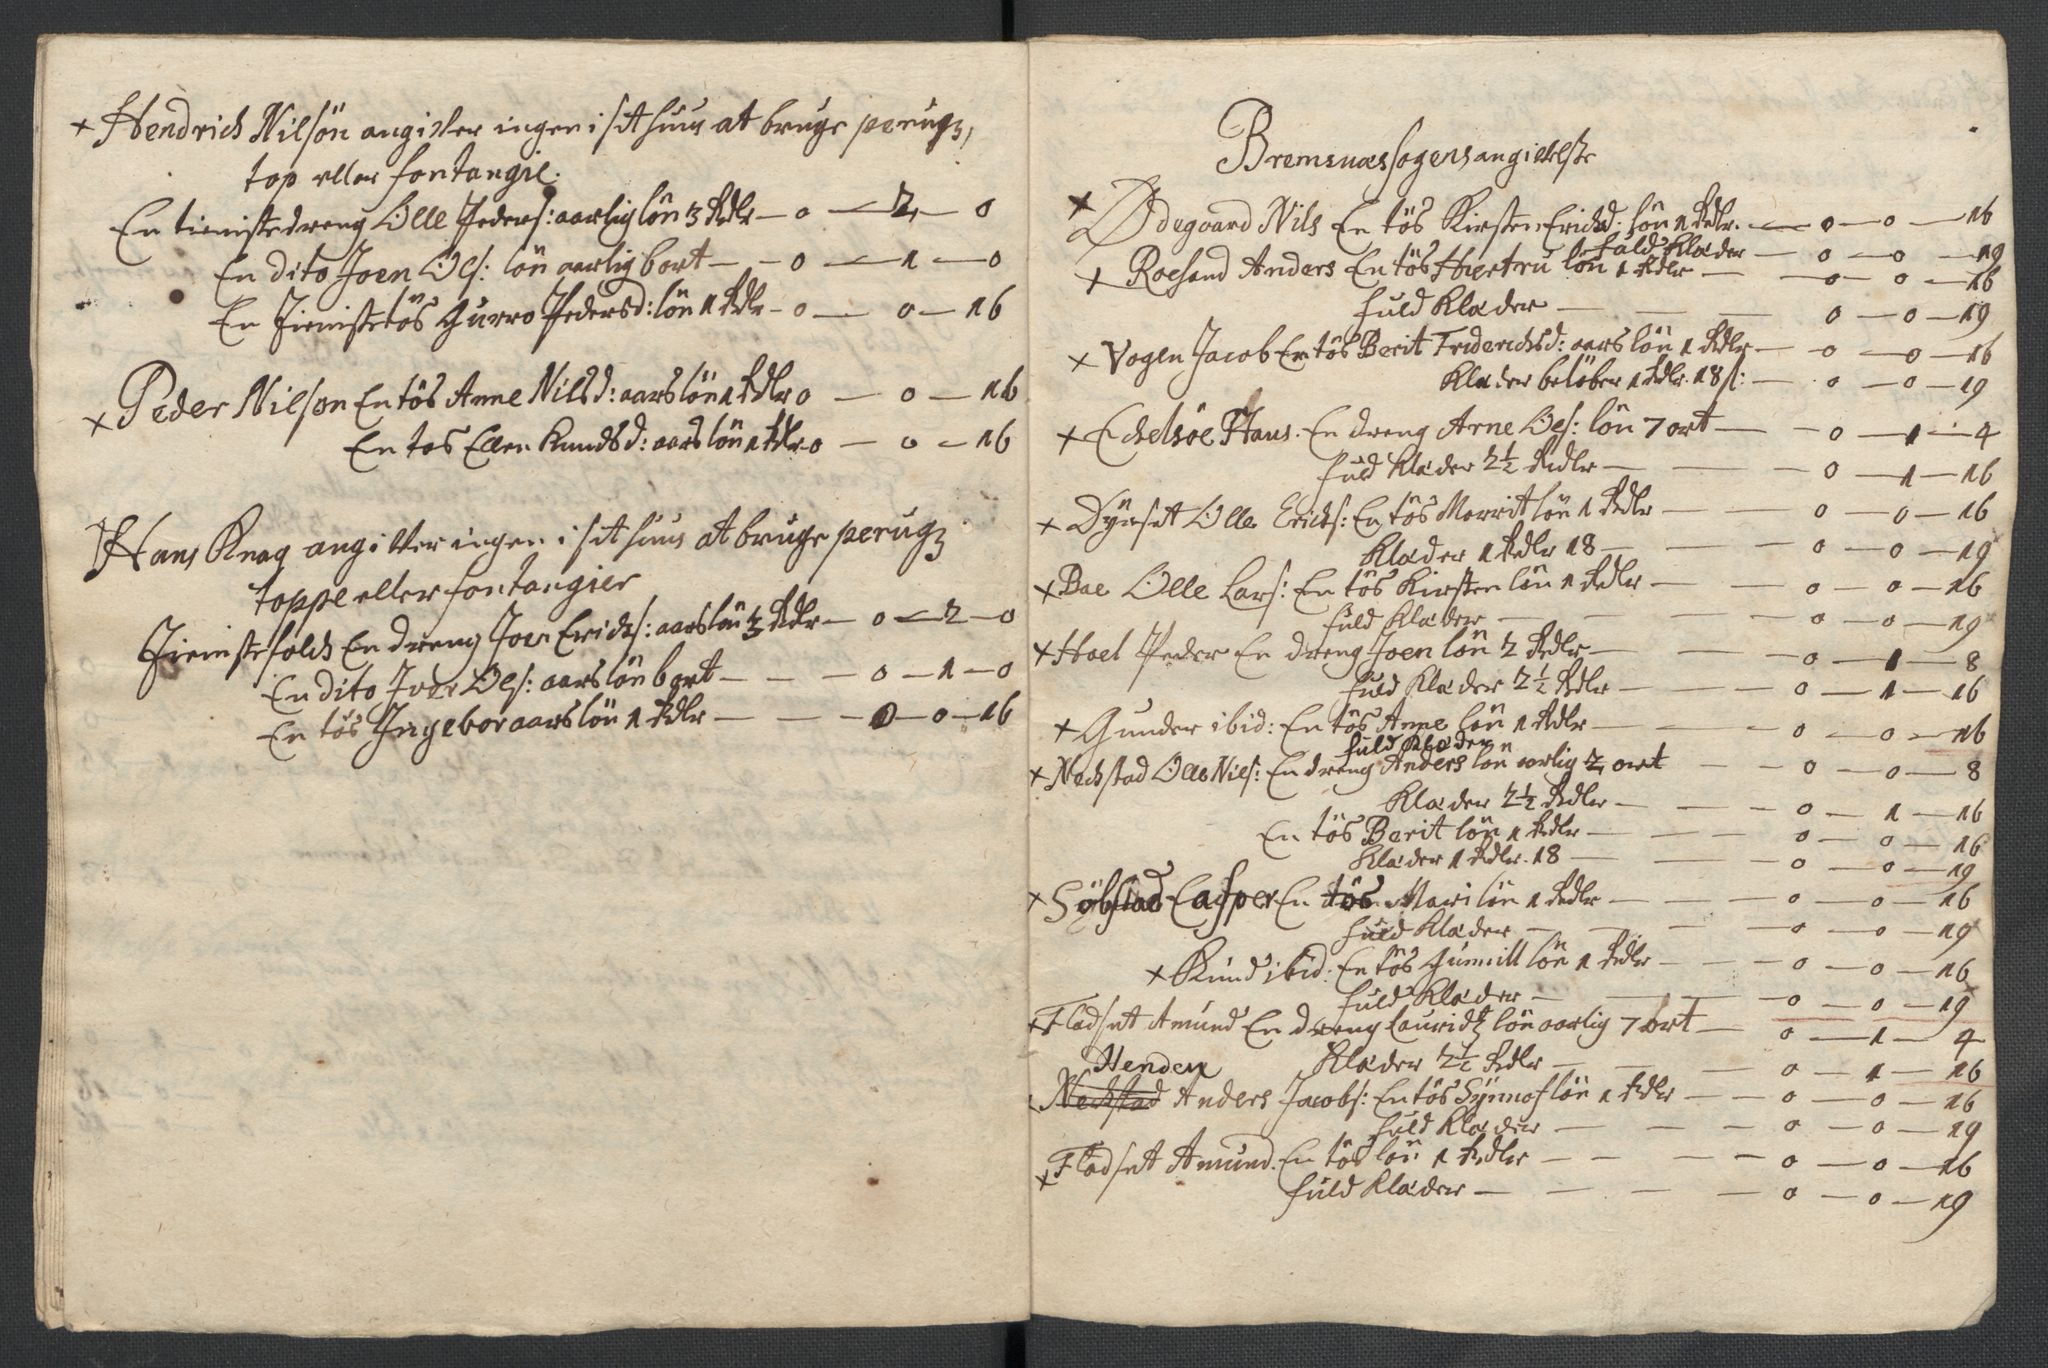 + Hendrich Nilsön angifter ingen i sit huus at bruge perugz,
top eller fontangie.
En tieniste dreng Olle Peders: aarlig lön 3 Rdlr — 0 — 2 — 0
En dito Joen Ols: lön aarlig bort — 0 — 1 — 0
En Tienistetös Gurro Pedersd: lön 1 Rdlr — 0 — 0 — 16
+ Peder Nilsön En tös Anne Nilsd: aars lön 1 Rdlr 0 — 0 — 16
En tös Ellen Knudsd: aars lön 1 Rdlr 0 — 0 — 16
Hans Knag angifter ingen i sit huus at bruge perugz
toppe eller fontangier
Tienistefolch En dreng Joen Erichs: aars lön 3 Rdlr — 0 — 2 — 0
En dito Iver Ols: aars lön bort — 0 — 1 — 0
En tös Ingebor aars lön 1 Rdlr — 0 — 0 — 16
Bremsnæs sogens angivelse
+ Ødegaard Nils En tös Kirsten Erichsd: lön 1 Rdlr. — 0 — 0 — 16
fuld Klæder — 0 — 0 — 19
+ Roesand Anders En tös Hiertru lön 1 Rdlr — 0 — 0 — 16
fuld Klæder — 0 — 0 — 19
+ Vogen Jacob En tös Berit Friderichsd: aars lön 1 Rdlr — 0 — 0 — 16
Klæder beløber 1 Rdlr. 18 s: — 0 — 0 — 19
+ Echelsöe Hans. En dreng Arne Ols: lön 7 ort — 0 — 1 — 4
fuld Klæder 2½ Rdlr — 0 — 1 — 16
+ Dÿrset Olle Erichs: En tös Marrit lön 1 Rdlr — 0 — 0 — 16
Klæder 1 Rdlr 18 — 0 — 0 — 19
+ Bae Olle Lars: En tös Kirsten lön 1 Rdlr — 0 — 0 — 16
fuld Klæder — 0 — 0 — 19
+ Hoel Peder En dreng Joen lön 2 Rdlr — 0 — 1 — 8
fuld Klæder 2½ Rdlr — 0 — 1 — 16
+ Gunder ibid: En tös Anne lön 1 Rdlr — 0 — 0 — 16
fuld Klæder
+ Nechstad Olle Nils: En dreng Anders lön aarlig 2 ort — 0 — 0 — 8
Klæder 2½ Rdlr — 0 — 1 — 16
En tös Berit lön 1 Rdlr — 0 — 0 — 16
Klæder 1 Rdlr. 18 — 0 — 0 — 19
+ Söbstad Casper En tös Mari lön 1 Rdlr — 0 — 0 — 16
fuld Klæder — 0 — 0 — 19
+ Knud ibid: En tös Gunnill lön 1 Rdlr — 0 — 0 — 16
fuld Klæder — 0 — 0 — 19
+ Fladset Amund En dreng Lauridz lön aarlig 7 ort — 0 — 1 — 4
Klæder 2½ Rdlr — 0 — 1 — 16
Henden
Nechstad Anders Jacobs: En tös Synnof lön 1 Rdlr — 0 — 0 — 16
fuld Klæder — 0 — 0 — 19
+ Fladset Amund. En tös lön 1 Rdlr — 0 — 0 — 16
fuld Klæder — 0 — 0 — 19